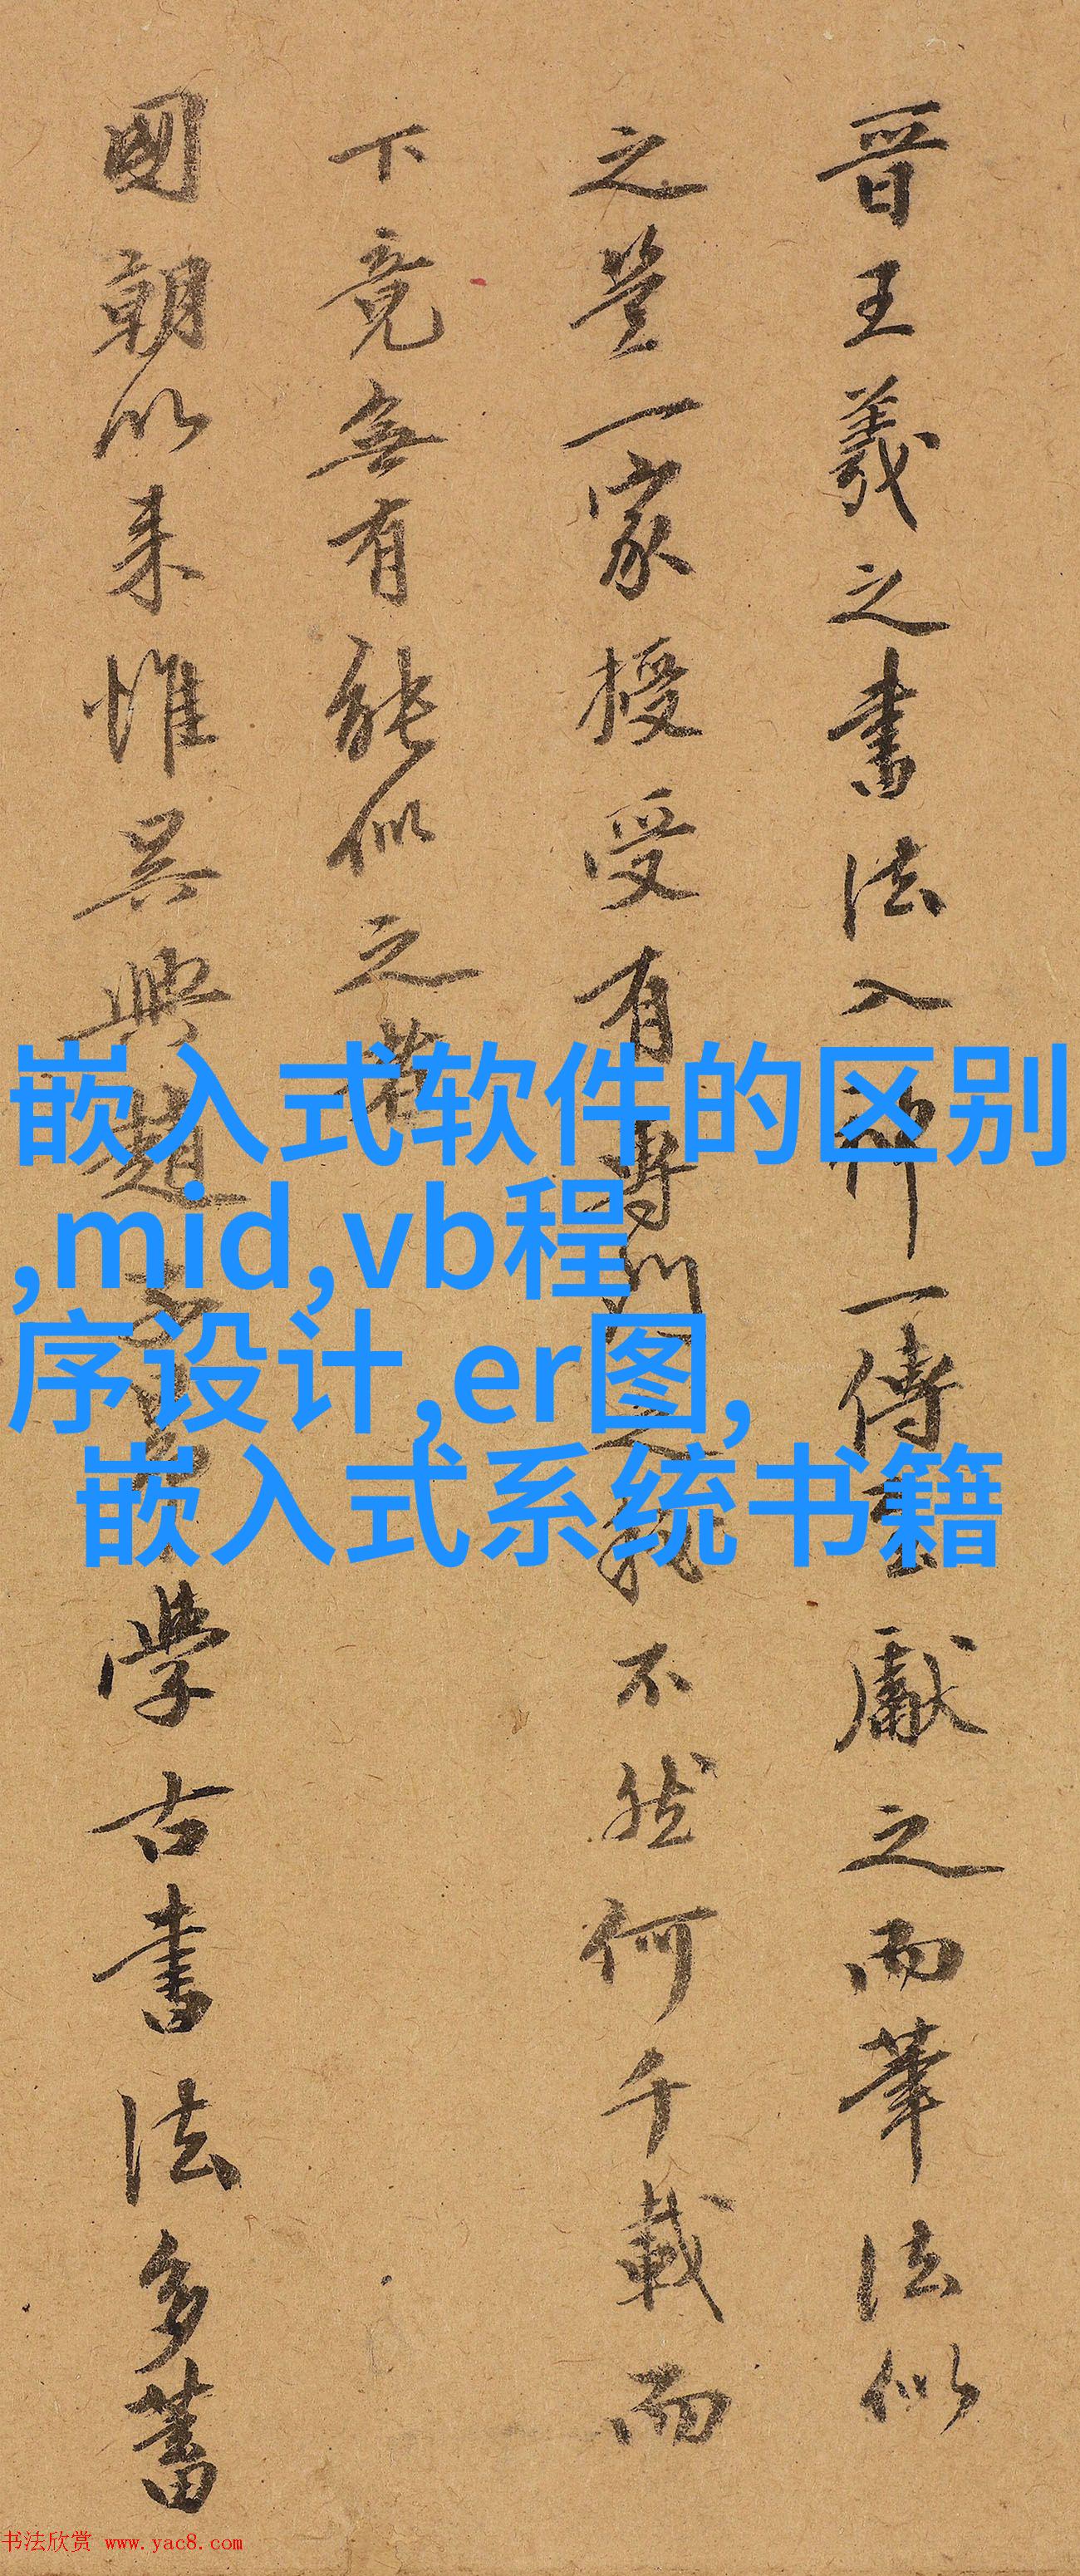 晋王羲之書法入神一傳至獻之而筆法似
之豈一家授受有專門之不然何千載而
下竟無有能似之者
國朝以来惟吴興趙學古書法多蓄
嵌入式软件的区别
,mid,vb程
序设计,er图,
嵌入式系统书籍
书法欣赏 www.yac8.com